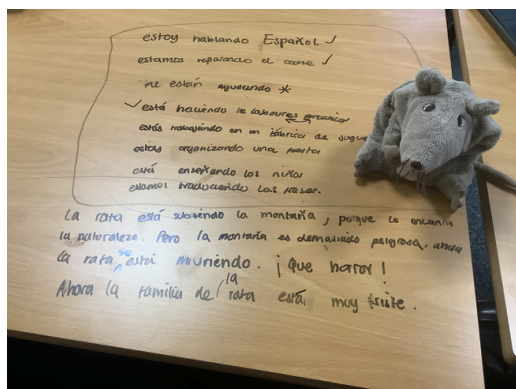 estoy hablando Español ✓
estamos reparando el coche ✓
me están ayudando *
✓ está haciendo la labores
estás trabajando en un fábrica de jugue
estoy organizando una
está enseñando los niños
estamos traduciendo las
La rata está subiendo la montaña, porque le encanta
la naturaleza. Pero la montaña es demasiado peligrosa. ahora
la rata se está muriendo. ¡Que horror!
Ahora la familia de la rata está muy triste.